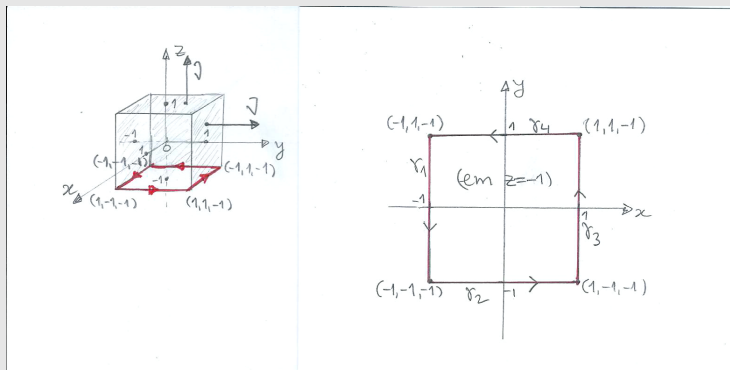 z
J
1
J
-1
1
0
1
y
(-1,-1,-1)
-1
(-1,1,-1)
x
(1,-1,-1)
(1,1,-1)
y
(-1,1,-1)
1
γ4
(1,1,-1)
γ1
(em z=-1)
-1
1
x
γ3
(-1,-1,-1)
γ2
-1
(1,-1,-1)